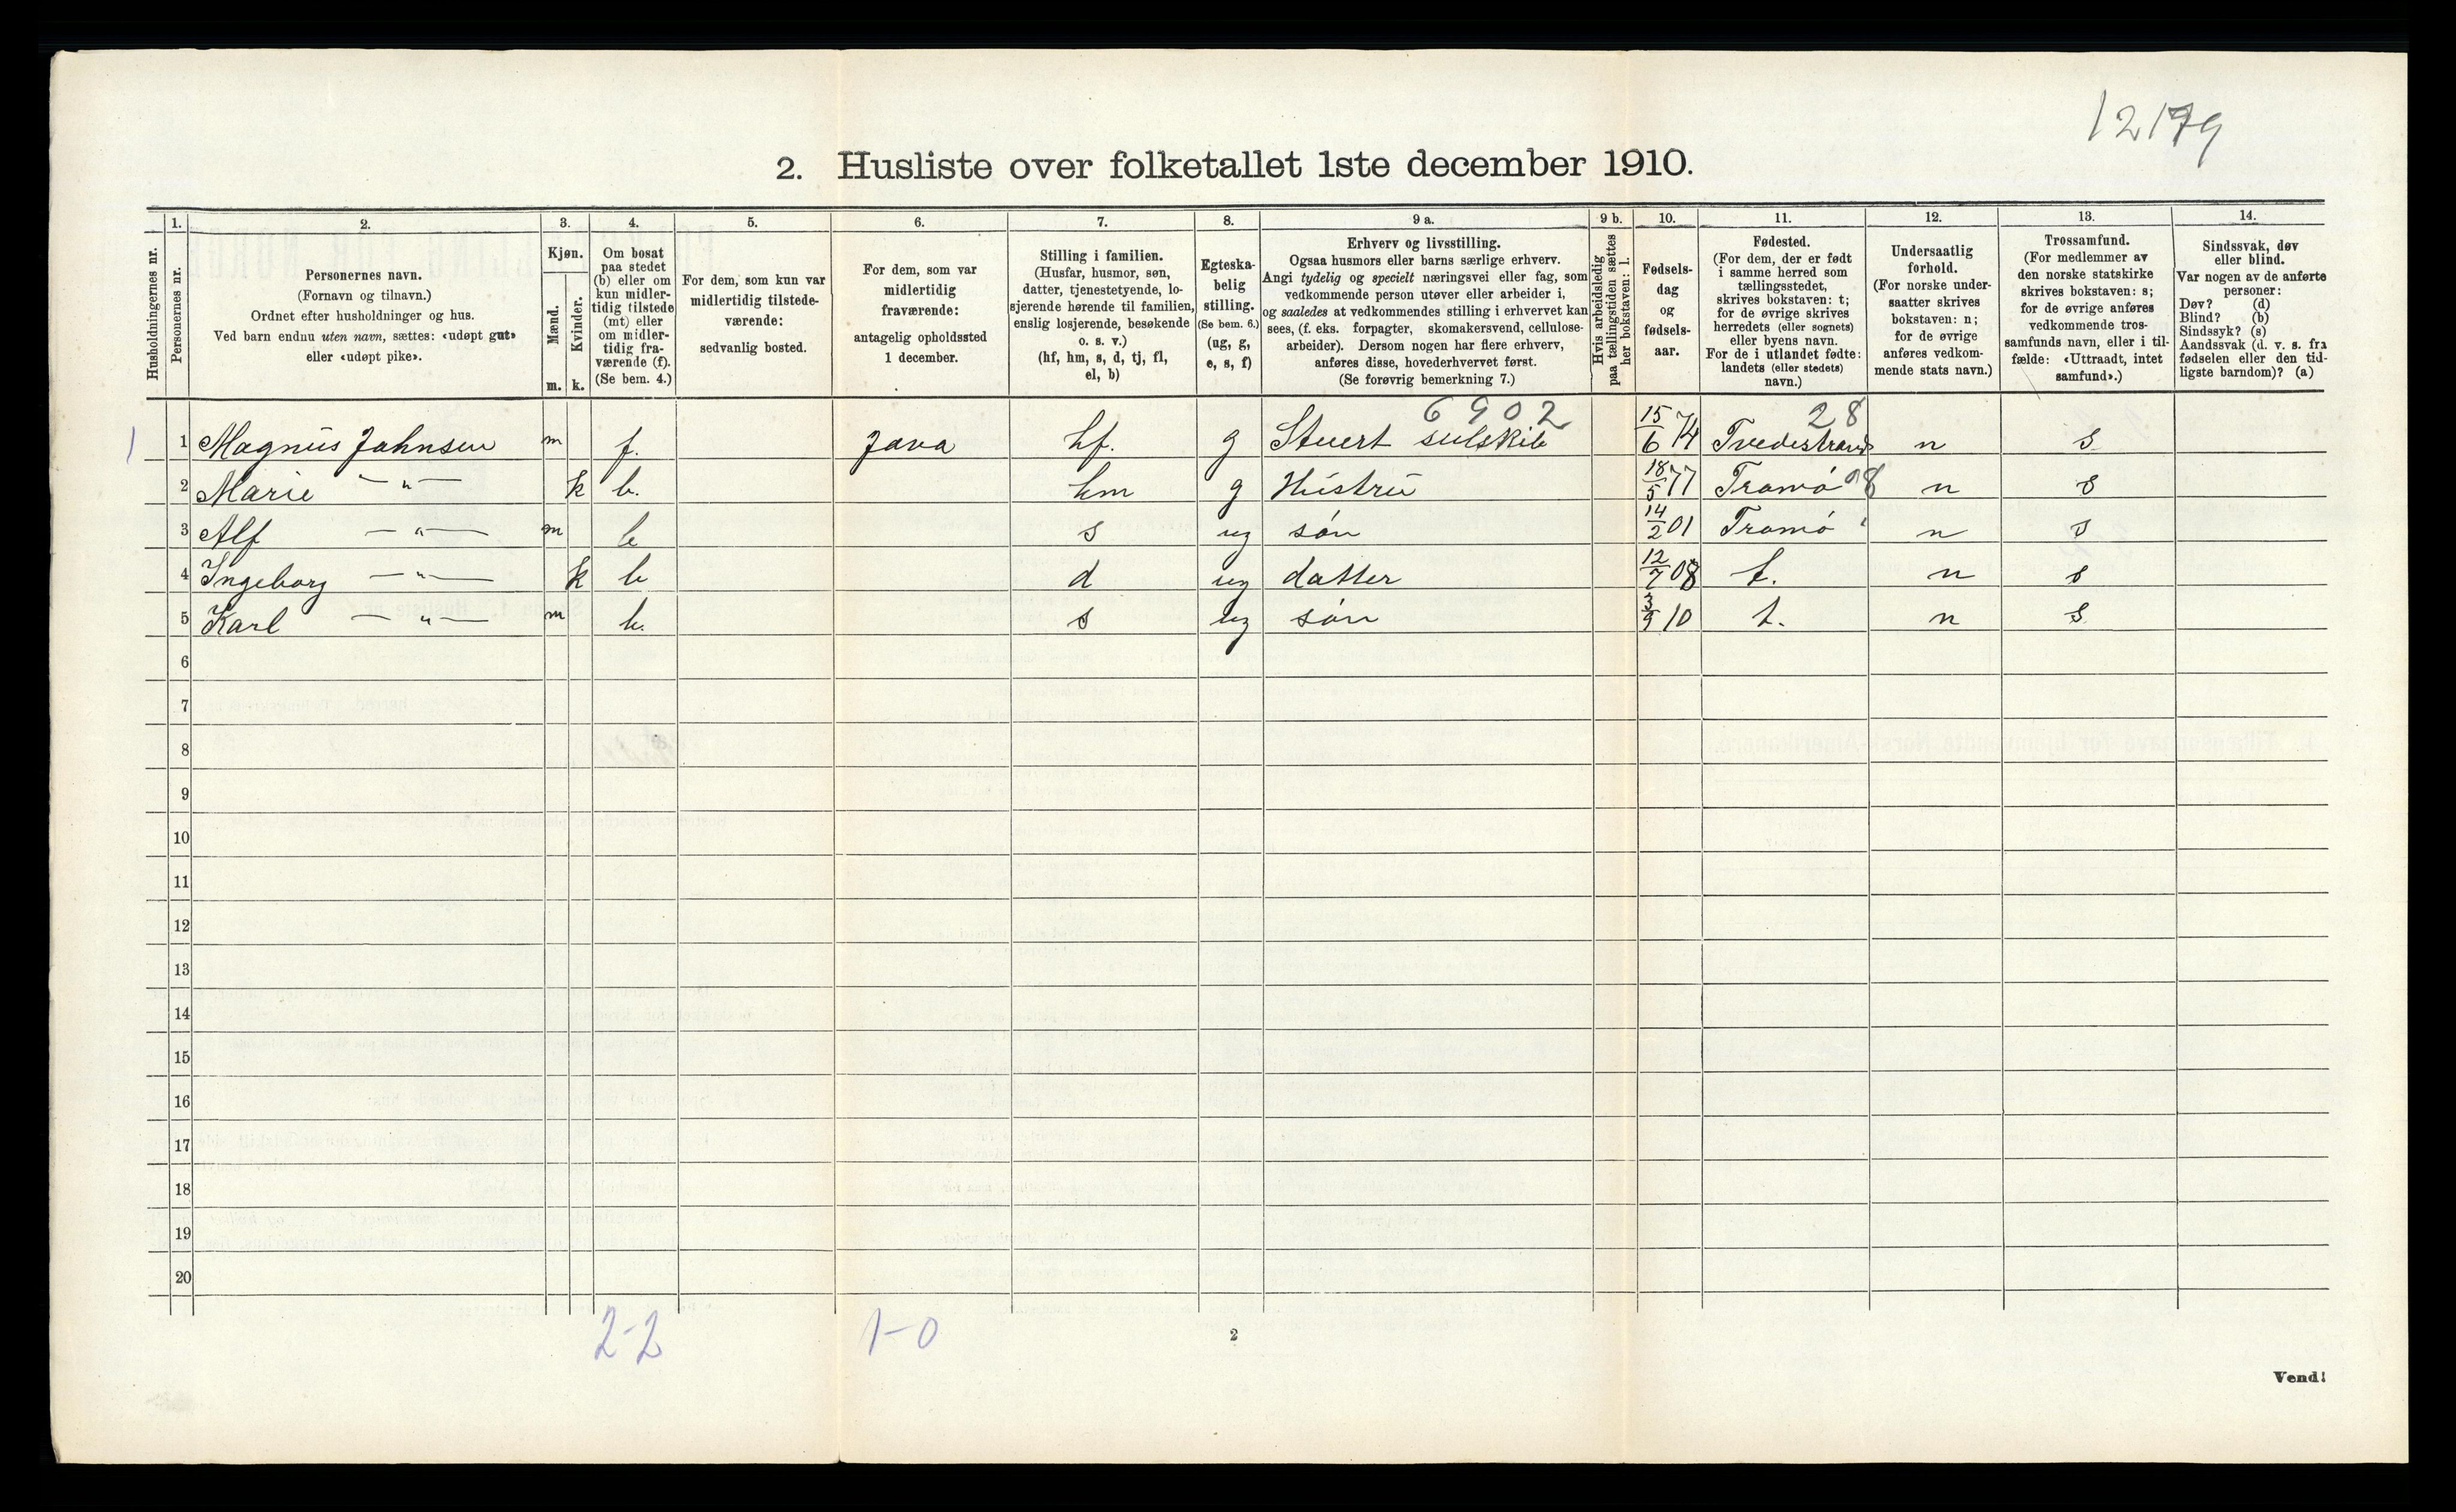 12179
2. Husliste over folketallet 1ste december 1910.
Husholdningernes nr.
1. Personernes nr.
2. Personernes navn.
(Fornavn og tilnavn.)
Ordnet efter husholdninger og hus.
Ved barn endnu uten navn, sættes: «udøpt gut»
eller «udøpt pike».
3. Kjøn.
Mænd. m.
Kvinder. k.
4. Om bosat
paa stedet
(b) eller om
kun midler-
tidig tilstede
(mt) eller
om midler-
tidig fra-
værende (f).
(Se bem. 4.)
5. For dem, som kun var
midlertidig tilstede-
værende:
sedvanlig bosted.
6. For dem, som var
midlertidig
fraværende:
antagelig opholdssted
1 december.
7. Stilling i familien.
(Husfar, husmor, søn,
datter, tjenestetyende, lo-
sjerende hørende til familien,
enslig losjerende, besøkende
o. s. v.)
(hf, hm, s, d, tj, fl,
el, b)
8. Egteska-
belig
stilling.
(Se bem. 6.)
(ug, g,
e, s, f)
9 a. Erhverv og livsstilling.
Ogsaa husmors eller barns særlige erhverv.
Angi tydelig og specielt næringsvei eller fag, som
vedkommende person utøver eller arbeider i,
og saaledes at vedkommendes stilling i erhvervet kan
sees, (f. eks. forpagter, skomakersvend, cellulose-
arbeider). Dersom nogen har flere erhverv,
anføres disse, hovederhvervet først.
(Se forøvrig bemerkning 7.)
9 b. Hvis arbeidsledig
paa tællingstiden sættes
her bokstaven: l.
10. Fødsels-
dag
og
fødsels-
aar.
11. Fødested.
(For dem, der er født
i samme herred som
tællingsstedet,
skrives bokstaven: t;
for de øvrige skrives
herredets (eller sognets)
eller byens navn.
For de i utlandet fødte:
landets (eller stedets)
navn.)
12. Undersaatlig
forhold.
(For norske under-
saatter skrives
bokstaven: n;
for de øvrige
anføres vedkom-
mende stats navn.)
13. Trossamfund.
(For medlemmer av
den norske statskirke
skrives bokstaven: s;
for de øvrige anføres
vedkommende tros-
samfunds navn, eller i til-
fælde: «Uttraadt, intet
samfund».)
14. Sindssvak, døv
eller blind.
Var nogen av de anførte
personer:
Døv? (d)
Blind? (b)
Sindssyk? (s)
Aandssvak (d. v. s. fra
fødselen eller den tid-
ligste barndom)? (a)
6902 28
1 1 Magnus Johnsen m f. Java hf. g Stuert seilskib 15/6 74 Tvedestrand n s
2 Marie —"— k b. hm g Hustru 18/5 77 Tromö 98 n s
3 Alf —"— m b s ug sön 14/2 01 Tromö " n s
4 Ingeborg —"— k b d ug datter 12/7 08 t. n s
5 Karl —"— m b. s ug sön 3/9 10 t. n s
6
7
8
9
10
11
12
13
14
15
16
17
18
19
20
2-2 1-0
2
Vend!